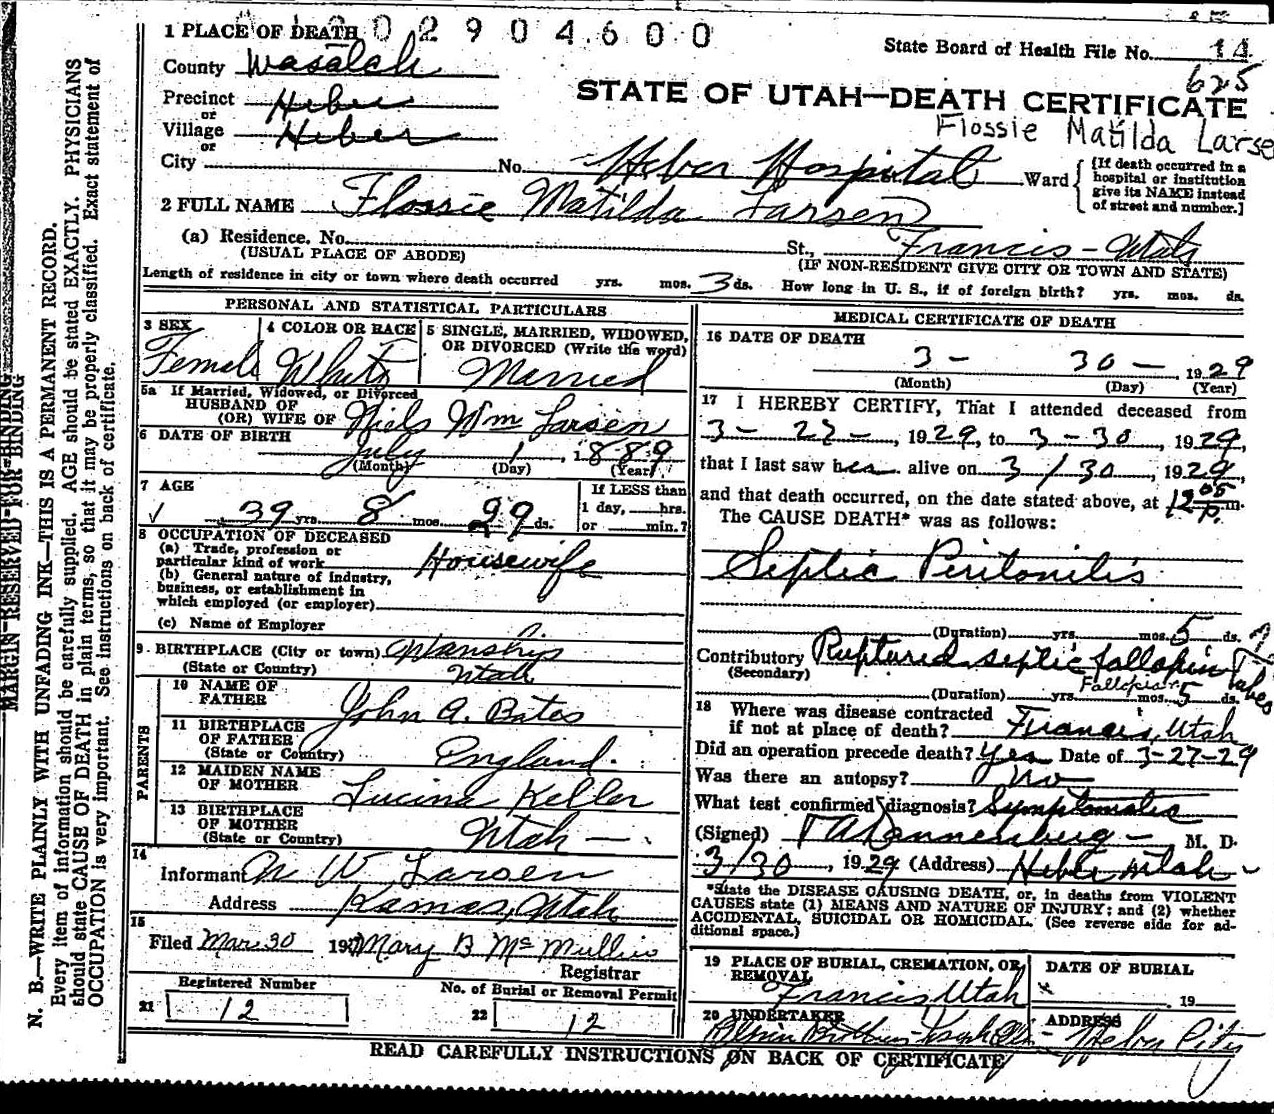 0 2 9 0 4 6 0 0
1 PLACE OF DEATH
State Board of Health File No. 14
625
County Wasatch
STATE OF UTAH—DEATH CERTIFICATE
Precinct Heber
or
Flossie Matilda Larse
Village Heber
or
City No. Heber Hospital Ward
{If death occurred in a
hospital or institution
give its NAME instead
of street and number.]
2 FULL NAME Flossie Matilda Larsen
(a) Residence. No. St., Francis - Utah
(USUAL PLACE OF ABODE) (IF NON-RESIDENT GIVE CITY OR TOWN AND STATE)
Length of residence in city or town where death occurred yrs. mos. 3 ds. How long in U. S., if of foreign birth? yrs. mos. ds.
PERSONAL AND STATISTICAL PARTICULARS
3 SEX 4 COLOR OR RACE 5 SINGLE, MARRIED, WIDOWED,
OR DIVORCED (Write the word)
Female White Married
5a If Married, Widowed, or Divorced
HUSBAND OF
(OR) WIFE OF Niels Wm Larsen
6 DATE OF BIRTH
July 1, 1889
(Month) (Day) (Year)
7 AGE If LESS than
1 day, hrs.
39 yrs. 8 mos. 29 ds. or min.?
8 OCCUPATION OF DECEASED
(a) Trade, profession or
particular kind of work Housewife
(b) General nature of industry,
business, or establishment in
which employed (or employer)
(c) Name of Employer
9 BIRTHPLACE (City or town) Wanship
(State or Country) Utah
PARENTS
10 NAME OF
FATHER John A. Bates
11 BIRTHPLACE
OF FATHER
(State or Country) England.
12 MAIDEN NAME
OF MOTHER Lucina Keller
13 BIRTHPLACE
OF MOTHER
(State or Country) Utah -
14
Informant N W Larsen
Address Kamas, Utah
15
Filed Mar 30 192 Mary B McMullin
Registrar
Registered Number No. of Burial or Removal Permit
21 12 22 12
MEDICAL CERTIFICATE OF DEATH
16 DATE OF DEATH
3 - 30 - 1929
(Month) (Day) (Year)
17 I HEREBY CERTIFY, That I attended deceased from
3 - 27 -, 1929, to 3 - 30, 1929,
that I last saw her alive on 3/30, 1929,
and that death occurred, on the date stated above, at 12 05 P. m.
The CAUSE DEATH* was as follows:
Septic Peritonitis
(Duration) yrs. mos. 5 ds. ?
Contributory Ruptured septic fallopin Tubes
(Secondary)
Fallopian
(Duration) yrs. mos. 5 ds.
18 Where was disease contracted
if not at place of death? Francis, Utah
Did an operation precede death? Yes Date of 3-27-29
Was there an autopsy? No
What test confirmed diagnosis? Symptomatic
(Signed) Dannenberg - M. D.
3/30, 1929 (Address) Heber Utah -
*State the DISEASE CAUSING DEATH, or, in deaths from VIOLENT
CAUSES state (1) MEANS AND NATURE OF INJURY; and (2) whether
ACCIDENTAL, SUICIDAL OR HOMICIDAL. (See reverse side for ad-
ditional space.)
19 PLACE OF BURIAL, CREMATION, OR
REMOVAL
DATE OF BURIAL
Francis, Utah 19
20 UNDERTAKER ADDRESS
Heber City
READ CAREFULLY INSTRUCTIONS ON BACK OF CERTIFICATE
MARGIN RESERVED FOR BINDING
N. B.—WRITE PLAINLY WITH UNFADING INK—THIS IS A PERMANENT RECORD.
Every item of information should be carefully supplied. AGE should be stated EXACTLY. PHYSICIANS
should state CAUSE OF DEATH in plain terms, so that it may be properly classified. Exact statement of
OCCUPATION is very important. See instructions on back of certificate.